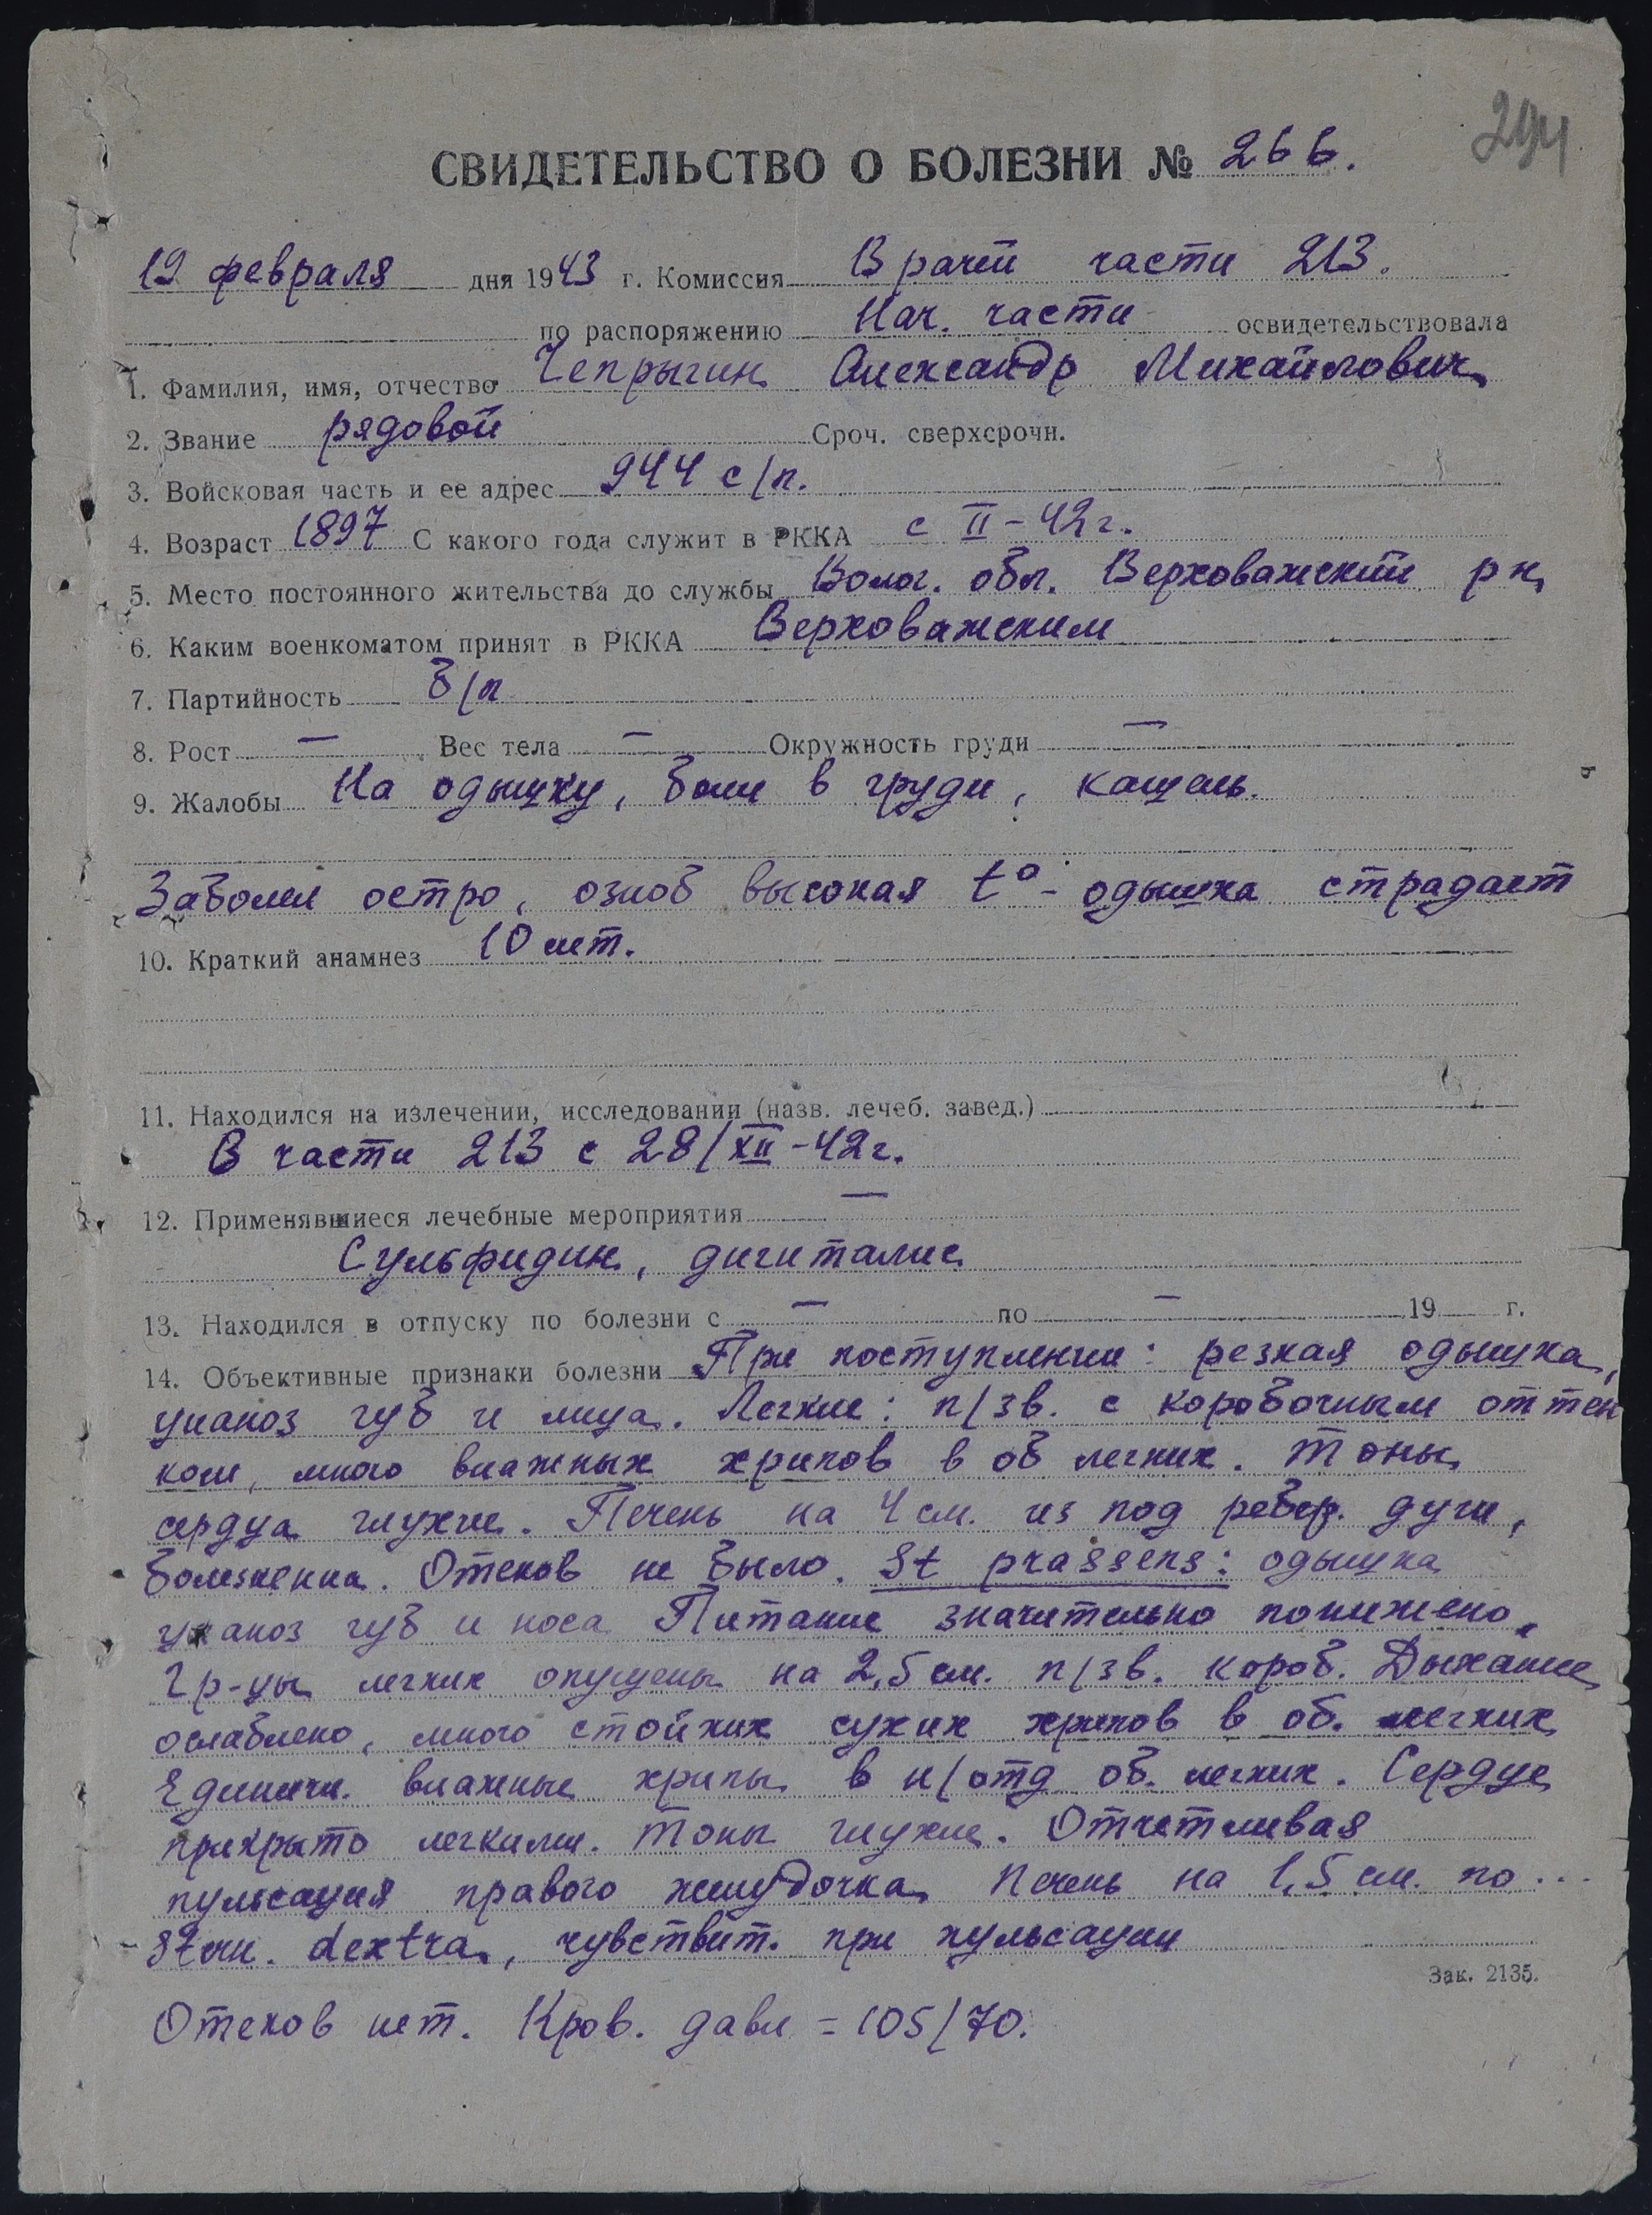 294
СВИДЕТЕЛЬСТВО О БОЛЕЗНИ № 266.
19 февраля дня 1943 г. Комиссия Врачей части 213.
по распоряжению Нач. части освидетельствовала
1. Фамилия, имя, отчество Чепрыгин Александр Михайлович
2. Звание рядовой Сроч. сверхсрочн.
3. Войсковая часть и ее адрес 944 с/п.
4. Возраст 1897 С какого года служит в РККА с II-42г.
5. Место постоянного жительства до службы Волог. обл. Верховажский рн
6. Каким военкоматом принят в РККА Верховажским
7. Партийность б/п
8. Рост — Вес тела — Окружность груди —
9. Жалобы На одышку, боли в груди, кашель.
Заболел остро, озноб высокая t° - одышка страдает
10. Краткий анамнез 10 лет.
11. Находился на излечении, исследовании (назв. лечеб. завед.)
В части 213 с 28/XII-42г.
12. Применявшиеся лечебные мероприятия —
Сульфидин, дигиталис
13. Находился в отпуску по болезни с — по — 19 г.
14. Объективные признаки болезни При поступлении: резкая одышка,
цианоз губ и лица. Легкие: п/зв. с коробочным оттен
ком, много влажных хрипов в об легких. Тоны
сердца глухие. Печень на 4 см. из под ребер. дуги,
болезненна. Отеков не было. St prassens: одышка
цианоз губ и носа Питание значительно понижено,
Гр-цы легких опущены на 2,5 см. п/зв. короб. Дыхание
ослаблено, много стойких сухих хрипов в об. легких
Единичн. влажные хрипы в н/отд об. легких. Сердце
прикрыто легкими. Тоны глухие. Отчетливая
пульсация правого желудочка Печень на 1,5 см. по ...
dextra, чувствит. при пульсации
Зак. 2135.
Отеков нет. Кров. давл = 105/70.